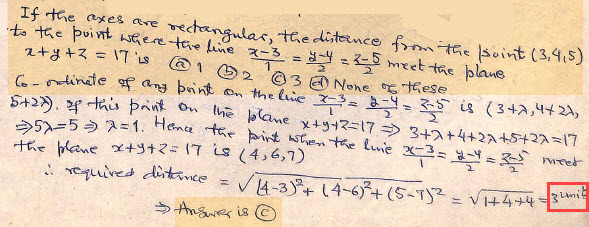 If the axes are rectangular, the distance from the point (3,4,5)
to the point where the line x-3/1 = y-4/2 = z-5/2 meet the plane
x+y+z = 17 is (a) 1 (b) 2 (c) 3 (d) None of these
Co-ordinate of any point on the line x-3/1 = y-4/2 = z-5/2 is (3+λ, 4+2λ,
5+2λ). If this point on the plane x+y+z=17 ⇒ 3+λ+4+2λ+5+2λ=17
⇒5λ=5 ⇒ λ=1. Hence the point when the line x-3/1 = y-4/2 = z-5/2 meet
the plane x+y+z=17 is (4,6,7)
∴ required distance = √(4-3)²+(4-6)²+(5-7)² = √1+4+4 = 3 unit
⇒ Answer is (c)